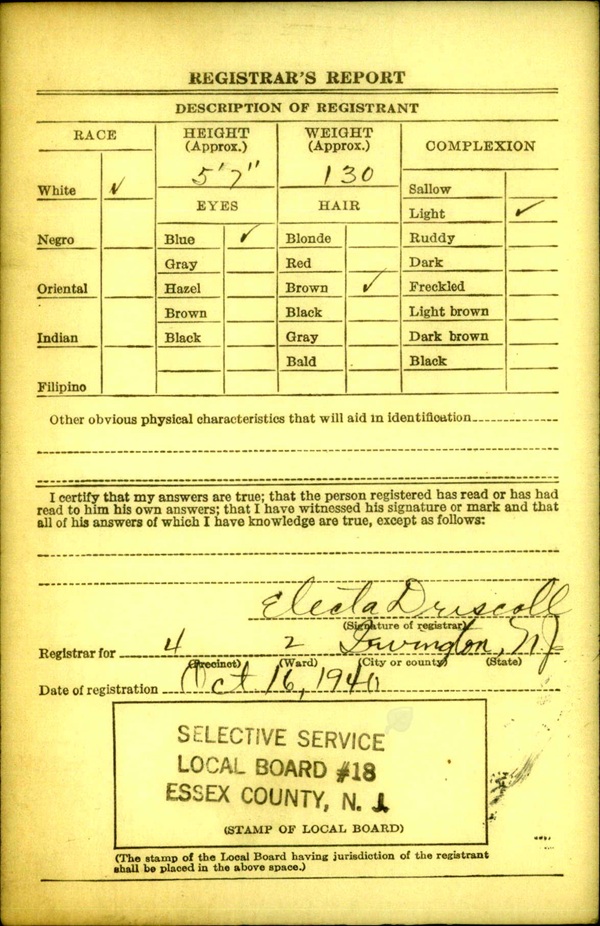 REGISTRAR'S REPORT
DESCRIPTION OF REGISTRANT
RACE
HEIGHT (Approx.)
WEIGHT (Approx.)
COMPLEXION
5'7"
130
White ✓
Negro
Oriental
Indian
Filipino
EYES
Blue ✓
Gray
Hazel
Brown
Black
HAIR
Blonde
Red
Brown ✓
Black
Gray
Bald
Sallow
Light ✓
Ruddy
Dark
Freckled
Light brown
Dark brown
Black
Other obvious physical characteristics that will aid in identification
I certify that my answers are true; that the person registered has read or has had
read to him his own answers; that I have witnessed his signature or mark and that
all of his answers of which I have knowledge are true, except as follows:
Electa Driscoll
(Signature of registrar)
Registrar for 4 2 Irvington, NJ
(Precinct) (Ward) (City or county) (State)
Date of registration Oct 16, 1940
SELECTIVE SERVICE
LOCAL BOARD #18
ESSEX COUNTY, N. J.
(STAMP OF LOCAL BOARD)
(The stamp of the Local Board having jurisdiction of the registrant
shall be placed in the above space.)